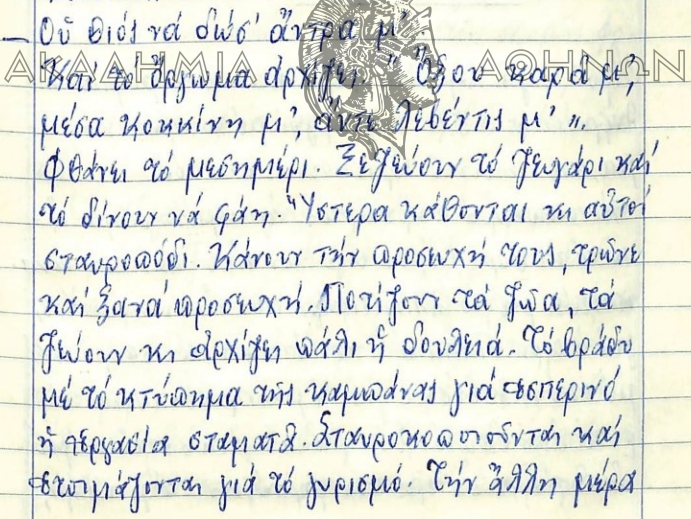 — Οὑ Θιός νά δώσ' ἄντρα μ'.
ΑΚΑΔΗΜΙΑ ΑΘΗΝΩΝ
Καί τό ὄργωμα ἀρχίζει. " Ὄξου καρά μ',
μέσα κοκκίνη μ', ἄντε λεβέντις μ' ".
Φθάνει τό μεσημέρι. Ξεζεύουν τό ζευγάρι καί
τό δίνουν νά φάη. Ὕστερα κάθονται κι αὐτοί
σταυροπόδι. Κάνουν τήν προσευχή τους, τρῶνε
καί ξανά προσευχή. Ποτίζουν τά ζῶα, τά
ζεύουν κι ἀρχίζει πάλι ἡ δουλειά. Τό βράδυ
μέ τό κτύπημα τῆς καμπάνας γιά ἑσπερινό
ἡ ἐργασία σταματᾶ. Σταυροκοπιοῦνται καί
ἑτοιμάζονται γιά τό γυρισμό. Τήν ἄλλη μέρα